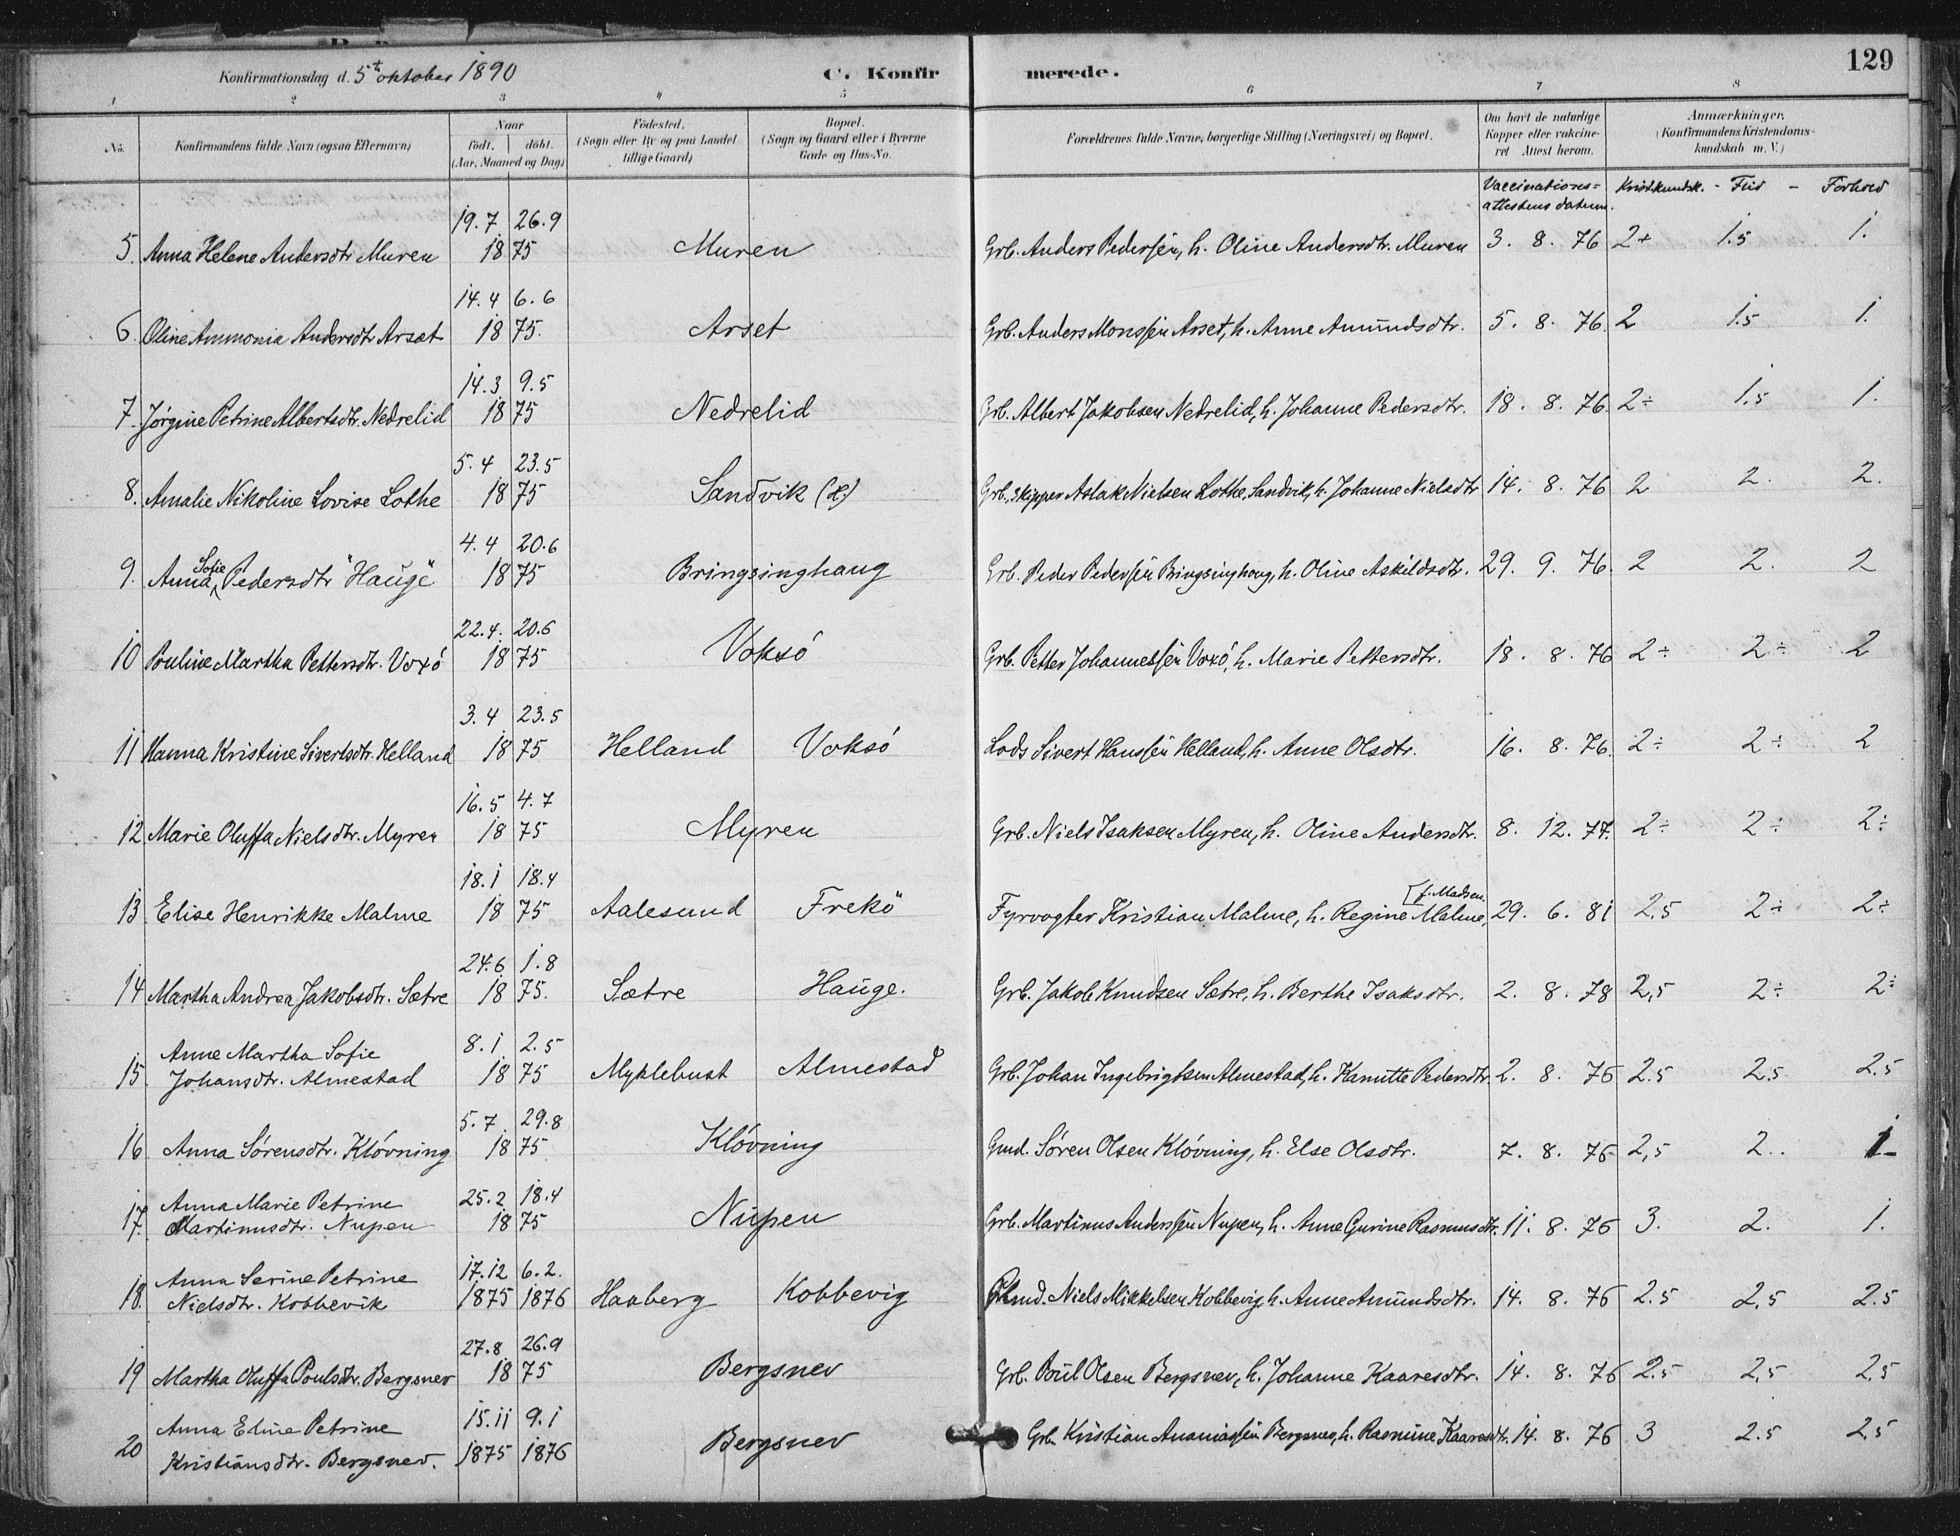 Konfirmationsdag d. 5te oktober 1890 C. Konfirmerede. 129
1 2 3 4 5 6 7 8
No. Konfirmandens fulde Navn (ogsaa Efternavn) Naar født. døbt. (Aar, Maaned og Dag) Fødested. (Sogn eller By og paa Landet tillige Gaard) Bopæl. (Sogn og Gaard eller i Byerne Gade og Hus-No. Forældrenes fulde Navne, borgerlige Stilling (Næringsvei) og Bopæl. Om havt de naturlige Kopper eller vakcineret Attest herom. Anmærkninger. (Konfirmandens Kristendomskundskab m. V.)
Vaccinations=attestens datum. Kristkundsk. - Flid - Forhold
19.7 26.9
5. Anna Helene Andersdtr Muren 1875 Muren Grb. Anders Pedersen, h. Oline Andersdtr. Muren 3. 8. 76 2+ 1.5 1.
14.4 6.6
6. Oline Ammonia Andersdtr Arset 1875. Arset Grb. Anders Monssen Arset, h. Anne Amundsdtr. 5. 8. 76. 2 1.5 1.
14.3 9.5
7. Jørgine Petrine Albertsdtr. Nedrelid 1875 Nedrelid Grb. Albert Jakobsen Nedrelid, h. Johanne Pedersdtr. 18. 8. 76. 2÷ 1.5 1.
5.4 23.5
8. Amalie Nikoline Lovise Lothe 1875 Sandvik Grb. skipper Aslak Nielsen Lothe, Sandvik, h. Johanne Nielsdtr 14. 8. 76 2 2. 2.
4.4 20.6
9. Anna Sofie Pedersdtr "Hauge" 1875 Bringsinghaug Grb. Peder Pedersen Bringsinghaug, h. Oline Askildsdtr. 29. 9. 76. 2 2. 2
22.4. 20.6
10 Pouline Martha Pettersdtr. Voxø 1875 Voksø Grb. Petter Johannessen Voxø, h. Marie Pettersdtr. 18. 8. 76 2÷ 2÷ 2
3.4 23.5
11 Hanna Kristine Sivertsdtr. Helland 1875 Helland Voksø Lods Sivert Hanssen Helland, h. Anne Olsdtr. 16. 8. 76. 2÷ 2÷ 2
16.5 4.7
12 Marie Oluffa Nielsdtr. Myren 1875 Myren Grb. Niels Isaksen Myren, h. Oline Andersdtr. 8. 12. 77. 2÷ 2÷ 2÷
18.1 18.4
13 Elise Henrikke Malme 1875 Aalesund Frekö Fyrvogter Kristian Malme, h. Regine Malme, f. Madsen. 29. 6. 81 2,5 2÷ 2÷
24.6 1.8
14 Martha Andrea Jakobsdtr. Sætre 1875. Sætre Hauge. Grb. Jakob Knudsen Sætre, h. Berthe Isaksdtr. 2. 8. 78 2,5 2÷ 2÷
Anne Martha Sofie 8.1 2.5
15. Johansdtr. Almestad 1875 Myklebust Almestad Grb. Johan Ingebrigtsen Almestad, h. Hanutte Pedersdtr. 2. 8. 76 2.5 2.5 2.5
5.7 29.8
16 Anna Sørensdtr. Kløvning 1875 Kløvning Gmd. Søren Olsen Kløvning, h. Else Olsdtr. 7. 8. 76 2,5 2.. 1
Anna Marie Petrine 25.2 18.4
17. Martinusdtr. Nupen 1875 Nupen Grb. Martinus Anderssen Nupen, h. Anne Gurine Rasmusdtr. 11. 8. 76 3. 2. 1.
Anna Serine Petrine 17.12 6.2.
18. Nielsdtr. Kobbevik 1875 1876 Haaberg Kobbevig Plmd. Niels Mikkelsen Kobbevig h. Anne Amundsdtr. 14. 8. 76 2.5 2,5 2.5
27.8 26.9
19 Martha Oluffa Poulsdtr. Bergsnev 1875 Bergsnev Grb. Poul Olsen Bergsnev, h. Johanne Kaaresdtr. 14. 8. 76 2.5 2,5 2,5
Anna Eline Petrine 15.11 9.1
20 Kristiansdtr. Bergsnev. 1875 1876 Bergsnev Grb. Kristian Ananiassen Bergsnev, h. Rasmine Kaaresdtr. 14. 8. 76 3 2.5 2,5